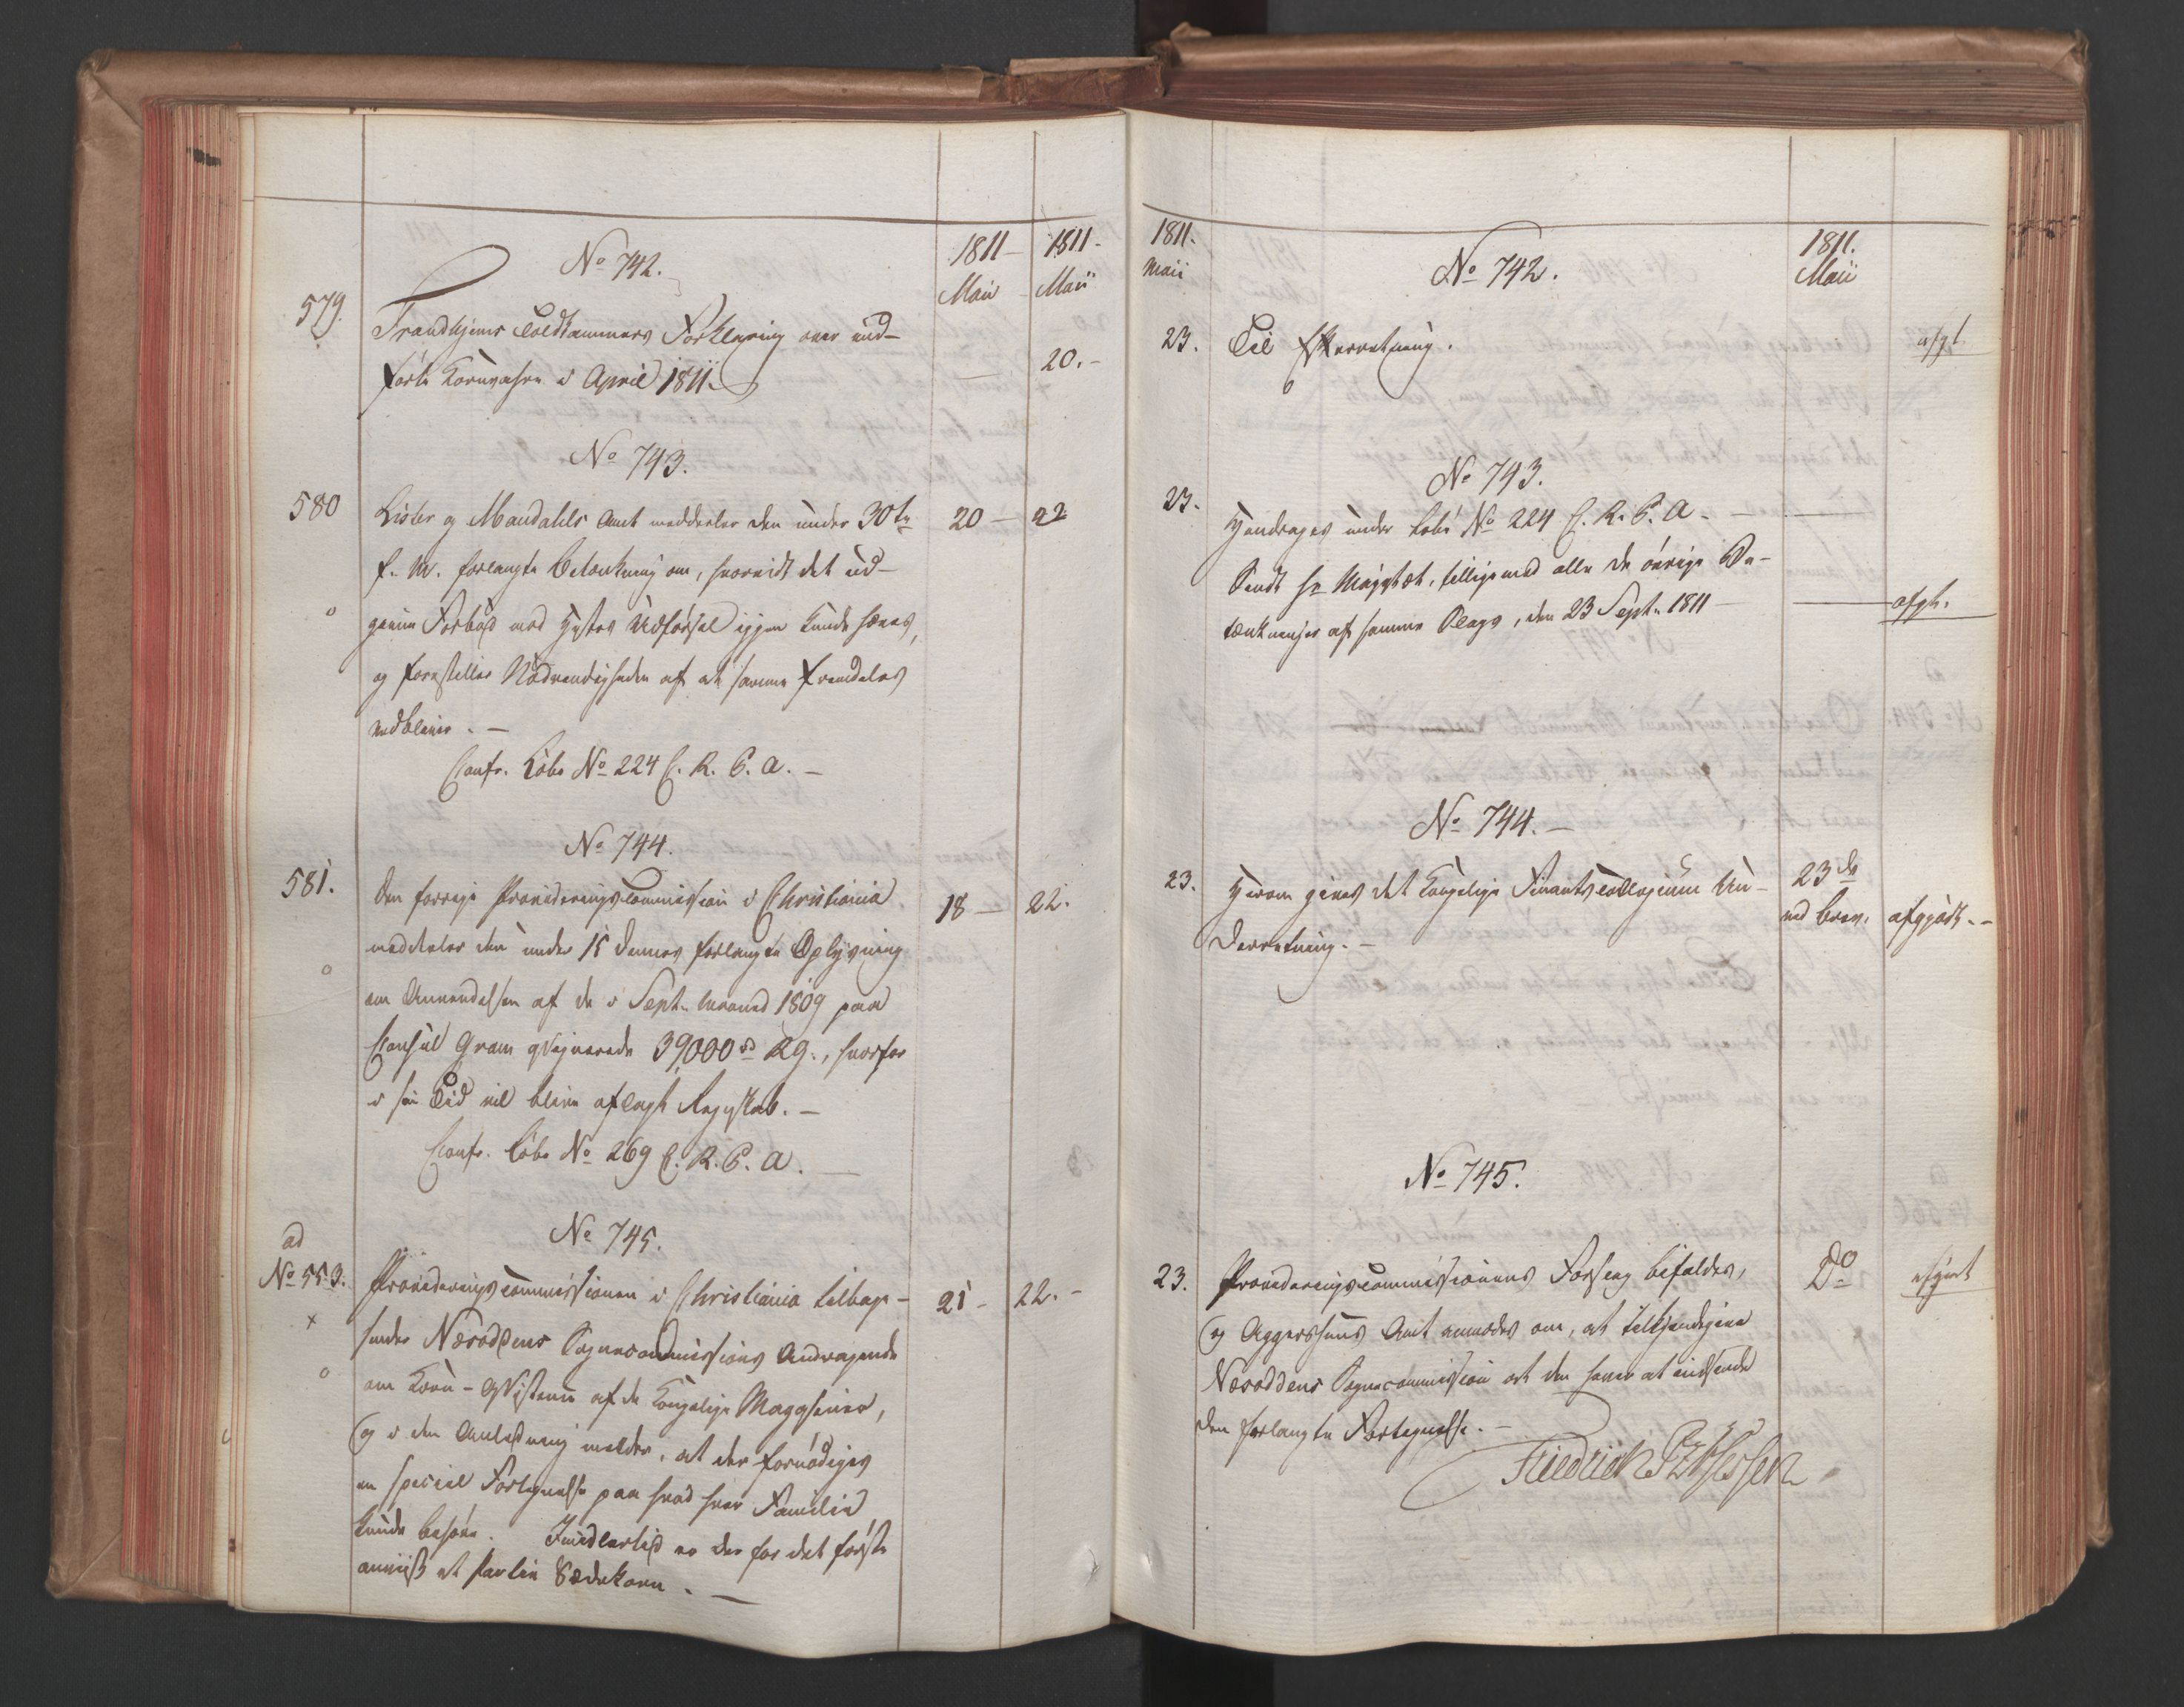 No 742.
1811 - 1811 -
Maii - Maii
579. Trondhjems Toldkammers Forklaring over ud-
førte Kornvahre i April 1811.
— 20. -
No 743.
580 Lister og Mandahls Amt meddeeler den under 30te
20 - 22
f. M. forlangte Betænkning om, hvorvidt det ud-
givne Forbud mod Udførsel igjen kunde hæves,
og forestiller Nødvendigheden af at samme fremdeles
vedbliver. -
Confr. Løbe No 224 C. R. P. A. -
No 744.
581. Den forrige Provideringscommission i Christiania
18 - 22.
meddeeler den under 15 dennes forlangte Oplysning
om Anvendelsen af de i Septr. Maaned 1809 paa
Consul Gram qviterede 39,000 rd Rg., hvorfor
i sin Tid vil blive aflagt Regnskab. -
Confr. Løbe No 269 C. R. P. A. -
No 745.
ad
No 553. Provideringscommissionen i Christiania tilbage-
21 - 22. -
x
sender Næsoddens Sognecommissions Andragende
om Korn- af de Kongelige Magasiner,
og i den Anledning melder, at der fornødiges
en special Fortegnelse paa hvad hver Familie
kunde behøve. Imidlertid er der for det første
anviist et Parti Sædekorn. -
1811.
Maii
No 742.
1811.
Maii
23. Til Efterretning.
afgt.
No 743.
23. Henlægges under Løbe No 224 C. R. P. A. -
Sendt Hs Majestæt, tilligemed alle de øvrige Be-
tænkninger af samme Slags, den 23 Septr. 1811 -
afgt.
No 744. -
23. Herom gives det Kongelige Finantscollegium Un-
derretning. -
23de
ved Brev.
afgjort. -
No 745.
23. Provideringscommissionens Forslag bifaldes,
Do
afgjort
og Aggershuus Amt anmodes om, at tilkjendegive
Næsoddens Sognecommission at den haver at indsende
den forlangte Fortegnelse. -
Friedrich PzHessen